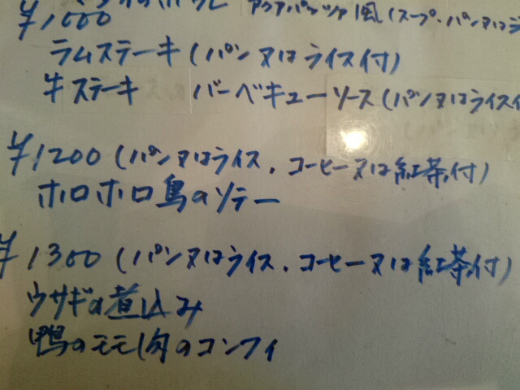 ¥1000 アクアパッツァ風(スープ、パン又はラ
ラムステーキ(パン又はライス付)
牛ステーキ バーベキューソース(パン又はライス付
¥1200(パン又はライス、コーヒー又は紅茶付)
ホロホロ鳥のソテー
¥1300(パン又はライス、コーヒー又は紅茶付)
ウサギの煮込み
鴨のモモ肉のコンフィ